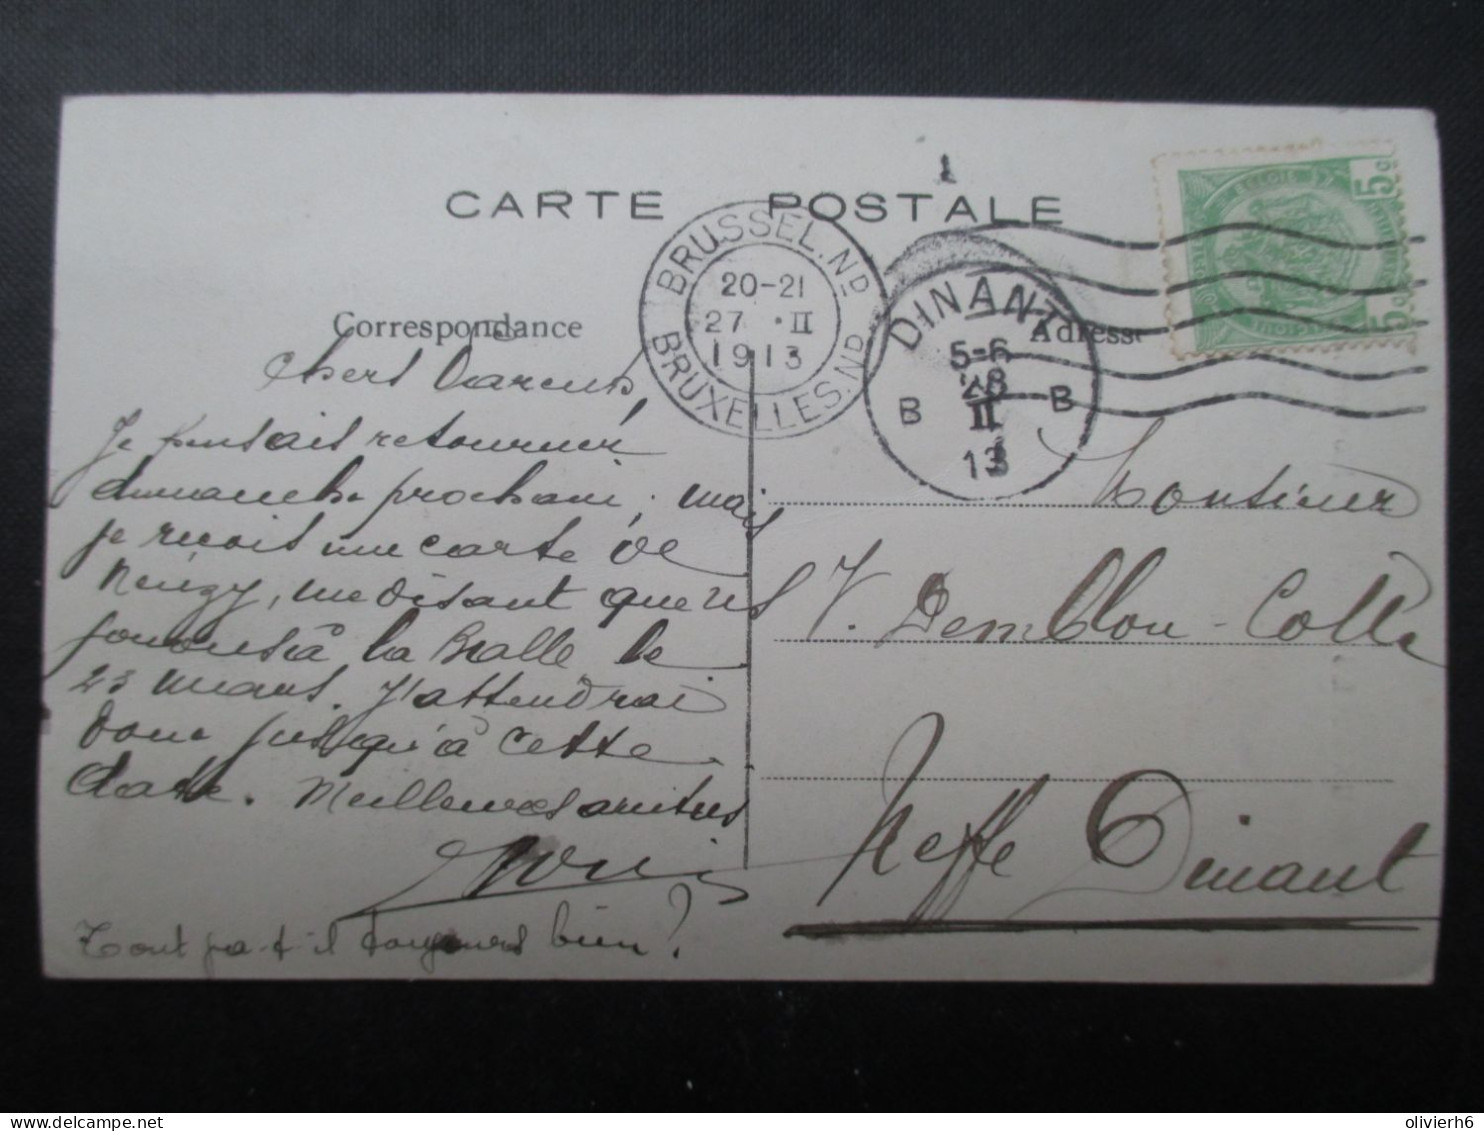 CARTE POSTALE
BRUSSEL.ND
20-21
27 · II
1913
BRUXELLES.ND
DINANT
5-6
28
II
13
B B
BELGIE
5c
5c
Correspondance
Adresse
Chers Parents
Je pensais retourner
dimanche prochain, mais
je reçois une carte de
me disant que ns
jouons à la Balle le
23 mars. J'attendrai
donc jusqu'à cette
date. Meilleures amitiés
Tout va-t-il toujours bien?
Monsieur
V. Demblon-Colle
Neffe Dinant
olivierh6